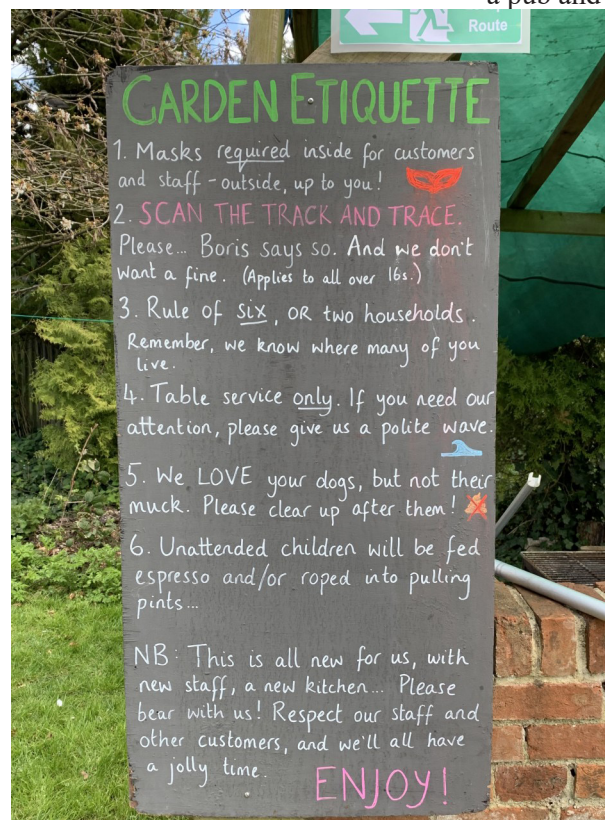 a pub and
Route
GARDEN ETIQUETTE
1. Masks required inside for customers
and staff - outside, up to you!
2. SCAN THE TRACK AND TRACE.
Please... Boris says so. And we don't
want a fine. (Applies to all over 16s.)
3. Rule of six, OR two households.
Remember, we know where many of you
live.
4. Table service only. If you need our
attention, please give us a polite wave.
5. We LOVE your dogs, but not their
muck. Please clear up after them!
6. Unattended children will be fed
espresso and/or roped into pulling
pints...
NB: This is all new for us, with
new staff, a new kitchen... Please
bear with us! Respect our staff and
other customers, and we'll all have
a jolly time.
ENJOY!